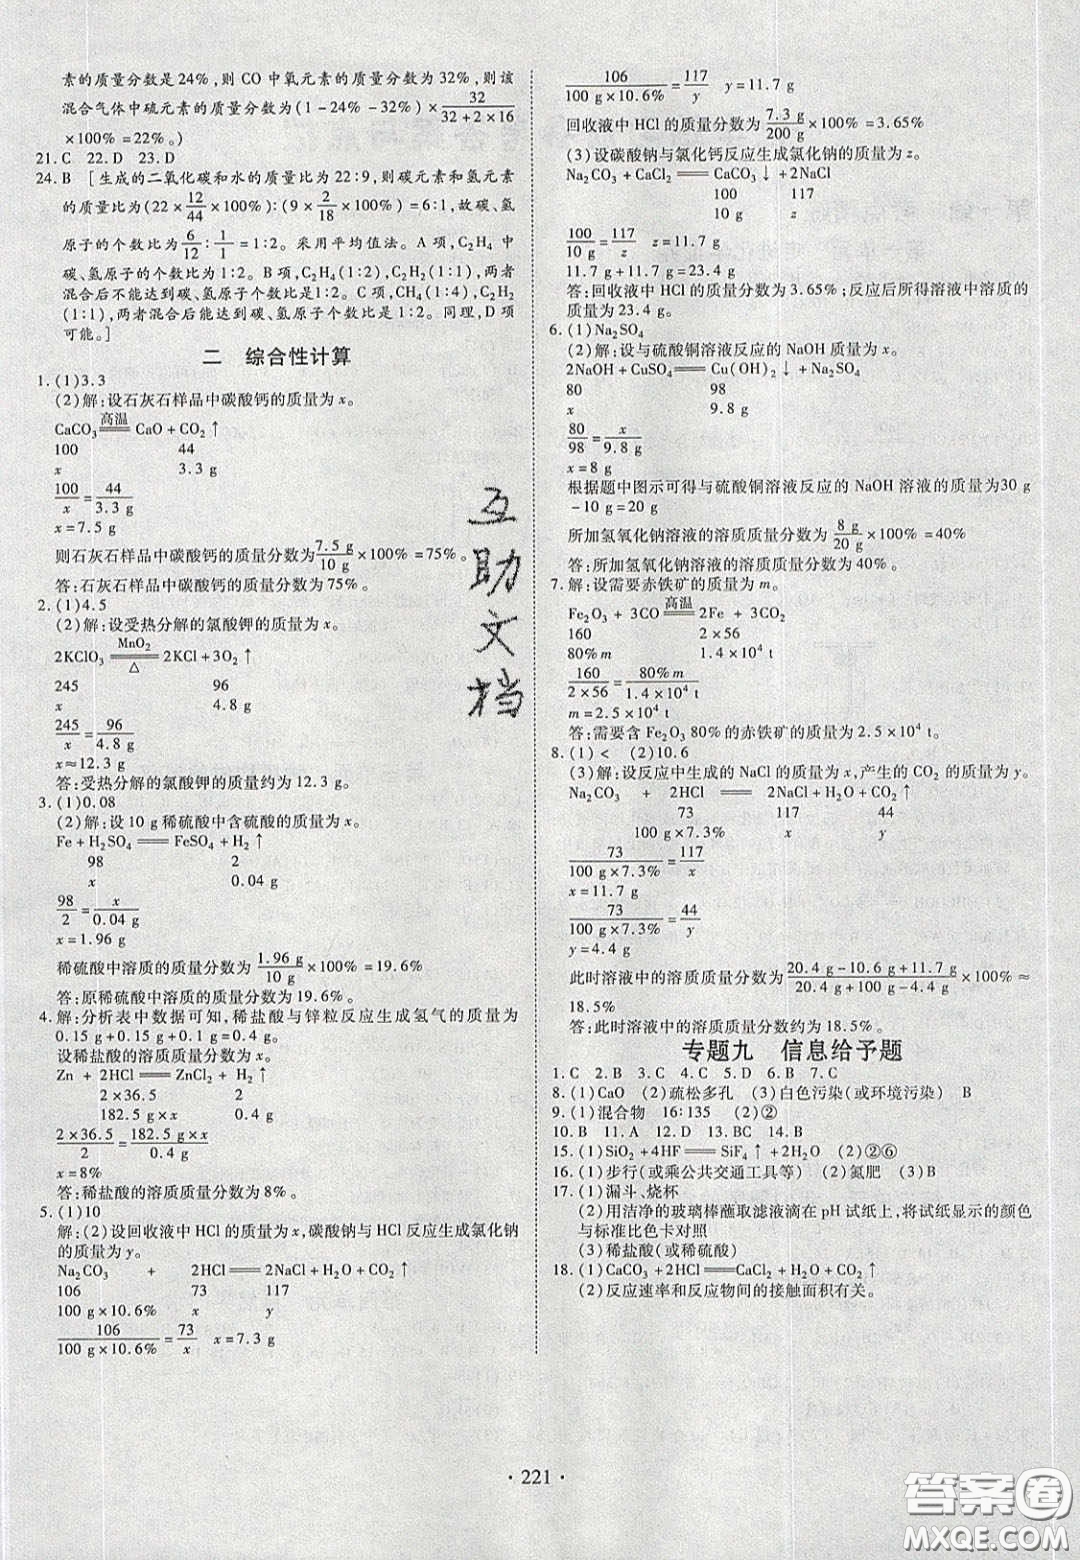 素的质量分数是24%,则CO中氧元素的质量分数为32%,则该
混合气体中硫元素的质量分数为(1-24%-32%)×32/(32+2×16)
×100%=22%。]
21.C 22.D 23.D
24.B [生成的二氧化碳和水的质量比为22:9,则碳元素和氢元素
的质量比为(22×12/44×100%):(9×2/18×100%)=6:1,故碳、氢
原子的个数比为6/12:1/1=1:2。采用平均值法。A项,C2H4中
碳、氢原子的个数比为1:2。B项,C2H4(1:2),C2H2(1:1),两者
混合后不能达到碳、氢原子个数比是1:2。C项,CH4(1:4),C2H2
(1:1),两者混合后能达到碳、氢原子个数比为1:2。同理,D项
可能。]
二 综合性计算
1.(1)3.3
(2)解:设石灰石样品中碳酸钙的质量为x。
CaCO3 =高温= CaO+CO2↑
100 44
x 3.3 g
100/x=44/3.3 g
x=7.5 g
则石灰石样品中碳酸钙的质量分数为7.5 g/10 g×100%=75%。
答:石灰石样品中碳酸钙的质量分数为75%。
2.(1)4.5
(2)解:设受热分解的氯酸钾的质量为x。
2KClO3 =MnO2/△= 2KCl+3O2↑
245 96
x 4.8 g
245/x=96/4.8 g
x≈12.3 g
答:受热分解的氯酸钾的质量约为12.3 g。
3.(1)0.08
(2)解:设10 g稀硫酸中含硫酸的质量为x。
Fe+H2SO4══FeSO4+H2↑
98 2
x 0.04 g
98/2=x/0.04 g
x=1.96 g
稀硫酸中溶质的质量分数为1.96 g/10 g×100%=19.6%
答:原稀硫酸中溶质的质量分数为19.6%。
4.解:分析表中数据可知,稀盐酸与锌粒反应生成氢气的质量为
0.15 g+0.15 g+0.1 g=0.4 g
设稀盐酸的溶质质量分数为x。
Zn + 2HCl══ZnCl2 + H2↑
2×36.5 2
182.5 g×x 0.4 g
2×36.5/2=182.5 g×x/0.4 g
x=8%
答:稀盐酸的溶质质量分数为8%。
5.(1)10
解:(2)设回收液中HCl的质量为x,碳酸钠与HCl反应生成氯化钠
的质量为y。
Na2CO3 + 2HCl══2NaCl+H2O+CO2↑
106 73 117
100 g×10.6% x y
106/(100 g×10.6%)=73/x x=7.3 g
106/(100 g×10.6%)=117/y y=11.7 g
回收液中HCl的质量分数为7.3 g/200 g×100%=3.65%
(3)设碳酸钠与氯化钙反应生成氯化钠的质量为z。
Na2CO3+CaCl2══CaCO3↓+2NaCl
100 117
10 g z
100/10 g=117/z z=11.7 g
11.7 g+11.7 g=23.4 g
答:回收液中HCl的质量分数为3.65%;反应后所得溶液中溶质的
质量为23.4 g。
6.(1)Na2SO4
(2)解:设与硫酸铜溶液反应的NaOH质量为x。
2NaOH+CuSO4══Cu(OH)2↓+Na2SO4
80 98
x 9.8 g
80/98=x/9.8 g
x=8 g
根据题中图示可得与硫酸铜溶液反应的NaOH溶液的质量为30 g
-10 g=20 g
所加氢氧化钠溶液的溶质质量分数为8 g/20 g×100%=40%
答:所加氢氧化钠溶液的溶质质量分数为40%。
7.解:设需要赤铁矿的质量为m。
Fe2O3+3CO =高温= 2Fe+3CO2
160 2×56
80%m 1.4×10⁴ t
160/(2×56)=80%m/(1.4×10⁴ t)
m=2.5×10⁴ t
答:需要含Fe2O3 80%的赤铁矿的质量为2.5×10⁴ t。
8.(1)< (2)10.6
(3)解:设反应中生成的NaCl的质量为x,产生的CO2的质量为y。
Na2CO3 + 2HCl ══ 2NaCl+H2O+CO2↑
73 117 44
100 g×7.3% x y
73/(100 g×7.3%)=117/x
x=11.7 g
73/(100 g×7.3%)=44/y
y=4.4 g
此时溶液中的溶质质量分数为(20.4 g-10.6 g+11.7 g)/(20.4 g+100 g-4.4 g)×100%≈
18.5%
答:此时溶液中的溶质质量分数约为18.5%。
专题九 信息给予题
1.C 2.B 3.C 4.C 5.D 6.B 7.C
8.(1)CaO (2)疏松多孔 (3)白色污染(或环境污染) B
9.(1)混合物 16:135 (2)②
10.B 11.A 12.D 13.BC 14.B
15.(1)SiO2+4HF══SiF4↑+2H2O (2)②⑥
16.(1)步行(或乘公共交通工具等) (2)氮肥 (3)B
17.(1)漏斗、烧杯
(2)用洁净的玻璃棒蘸取滤液滴在pH试纸上,将试纸显示的颜色
与标准比色卡对照
(3)稀盐酸(或稀硫酸)
18.(1)CaCO3+2HCl══CaCl2+H2O+CO2↑
(2)反应速率和反应物间的接触面积有关。
互助文档
·221·
答案圈
MXQE.COM